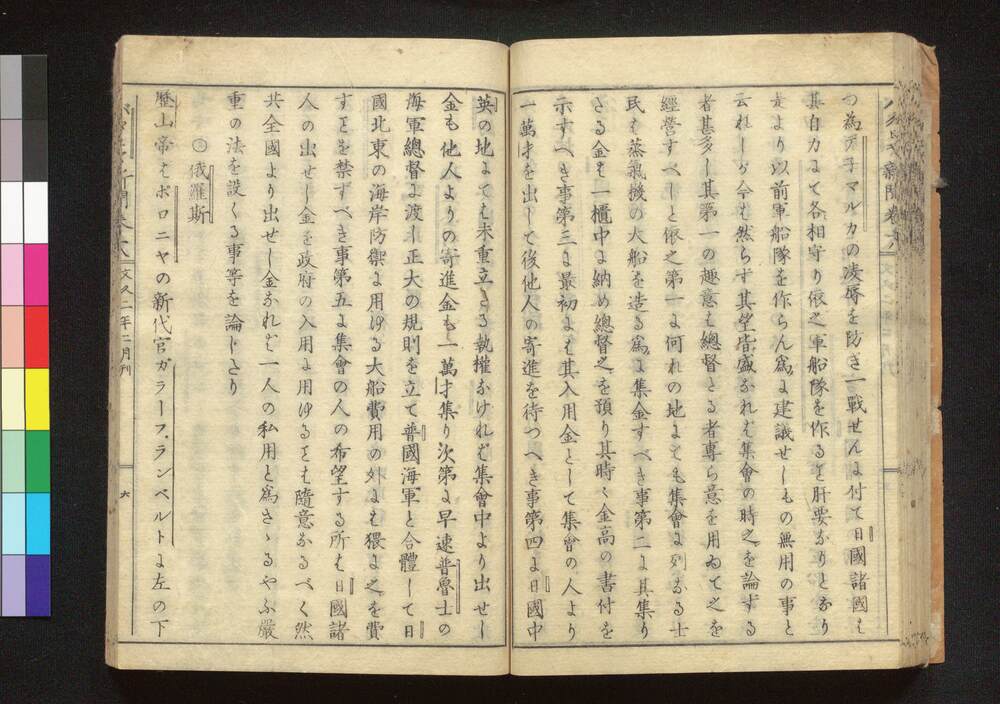 の為ヂ子マルカの凌辱を防ぎ一戦せんに付て日國諸國は
其自力にて各相守り依之軍船隊を作るを肝要なりとなり
是より以前軍船隊を作らん為に建議せしもの無用の事と
云れしが今は然らず其望皆盛なれば集會の時之を論ずる
者甚多し其第一の趣意は總督たる者專ら意を用ゐて之を
經營すべしと依之第一に何れの地にても集會に列なる士
民は蒸氣機の大船を造る為に集金すべき事第二に其集り
たる金を一櫃中に納め總督之を預り其時々金高の書付を
示すべき事第三に最初には其入用金として集會の人より
一萬才を出して後他人の寄進を待つべき事第四に日國中
英の地にては未重立たる執權なければ集會中より出せし
金も他人よりの寄進金も一萬才集り次第に早速普魯士の
海軍總督に渡し正大の規則を立て普國海軍と合體して日
國北東の海岸防禦に用ゆる大船費用の外には猥に之を費
すことを禁ずべき事第五に集會の人の希望する所は日國諸
人の出せし金を政府の入用に用ゆることは隨意なるべく然
共全國より出せし金なれば一人の私用と為さゝるやふ嚴
重の法を設くる事等を論じたり
俄羅斯
歷山帝はポロニヤの新代官ガラーフ、ランベルトに左の下
新聞巻六
文久二年二月刊
六